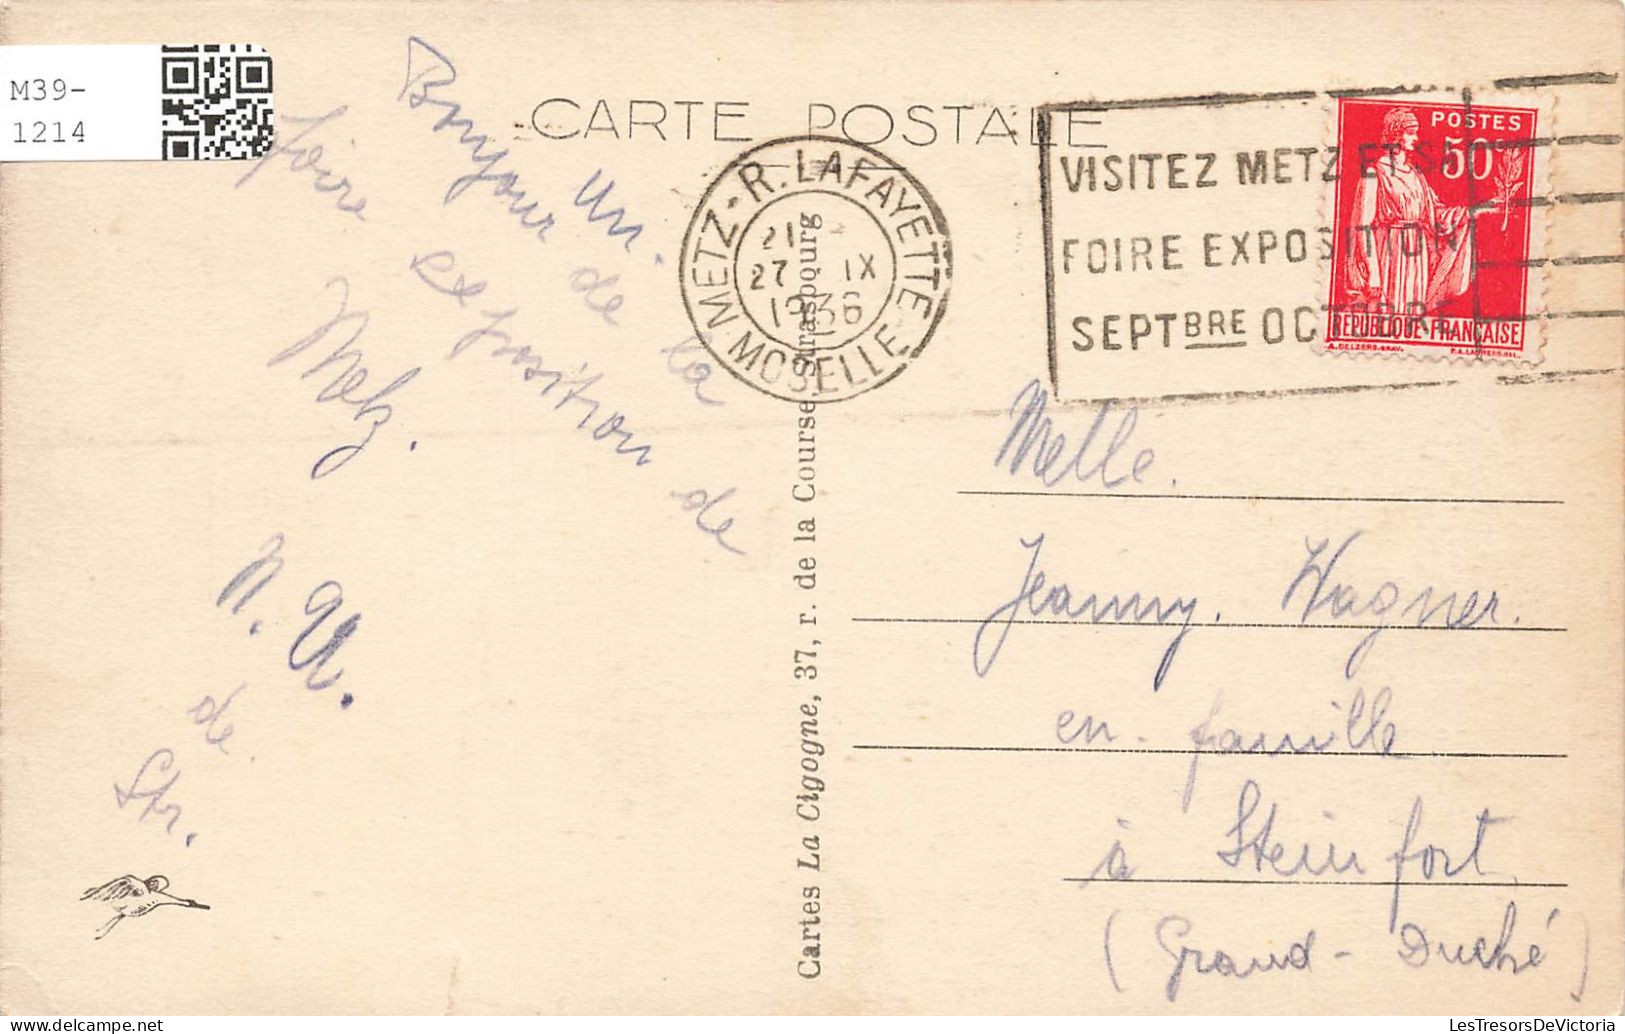 M39-
1214
CARTE POSTALE
METZ • R. LAFAYETTE
21
27 IX
1936
MOSELLE
VISITEZ METZ ET SA
FOIRE EXPOSITION
SEPTBRE OCTOBRE
POSTES
50c
REPUBLIQUE FRANÇAISE
Un
Bonjour de la
foire exposition de
Metz.
de
Str.
Cartes La Cigogne, 37, r. de la Course, Strasbourg
Melle.
Jeanny. Wagner.
en famille
à Steinfort
(Grand-Duché)
LesTresorsDeVictoria